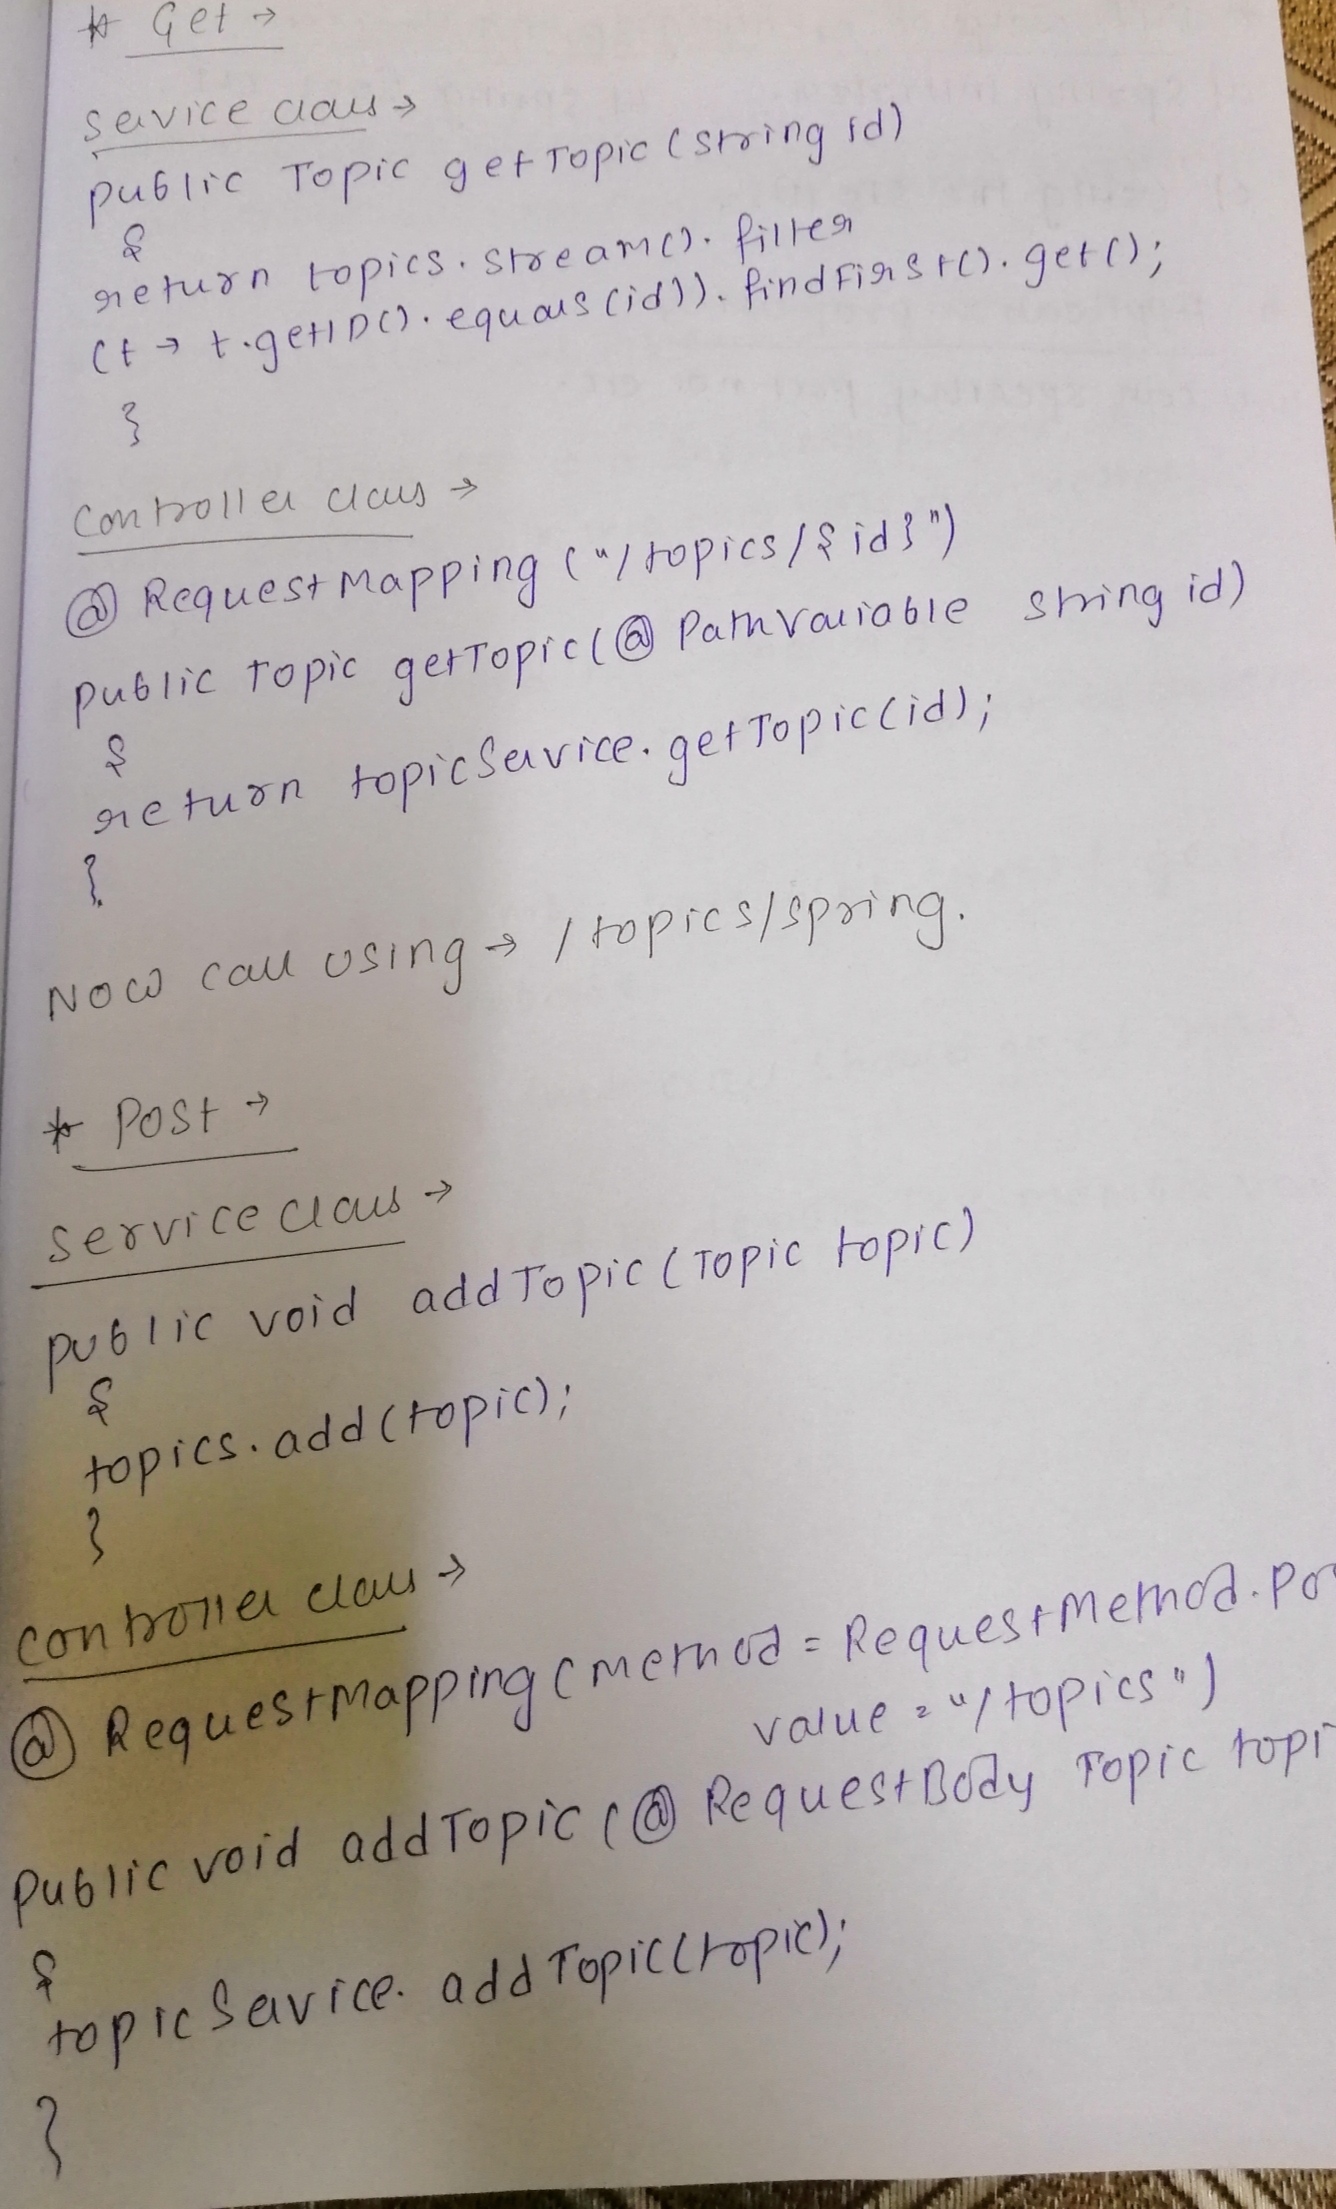 * Get →
Service class →
public Topic getTopic (String id)
{
return topics.stream().filter
(t → t.getID().equals(id)).findFirst().get();
}
Controller class →
@RequestMapping ("/topics/{id}")
public Topic getTopic(@PathVariable String id)
{
return topicService.getTopic(id);
}
Now call using → /topics/spring.
* Post →
Service class →
public void addTopic (Topic topic)
{
topics.add(topic);
}
Controller class →
@RequestMapping (method = RequestMethod.Po
value = "/topics")
Public void addTopic (@RequestBody Topic topi
{
topicService.addTopic(topic);
}